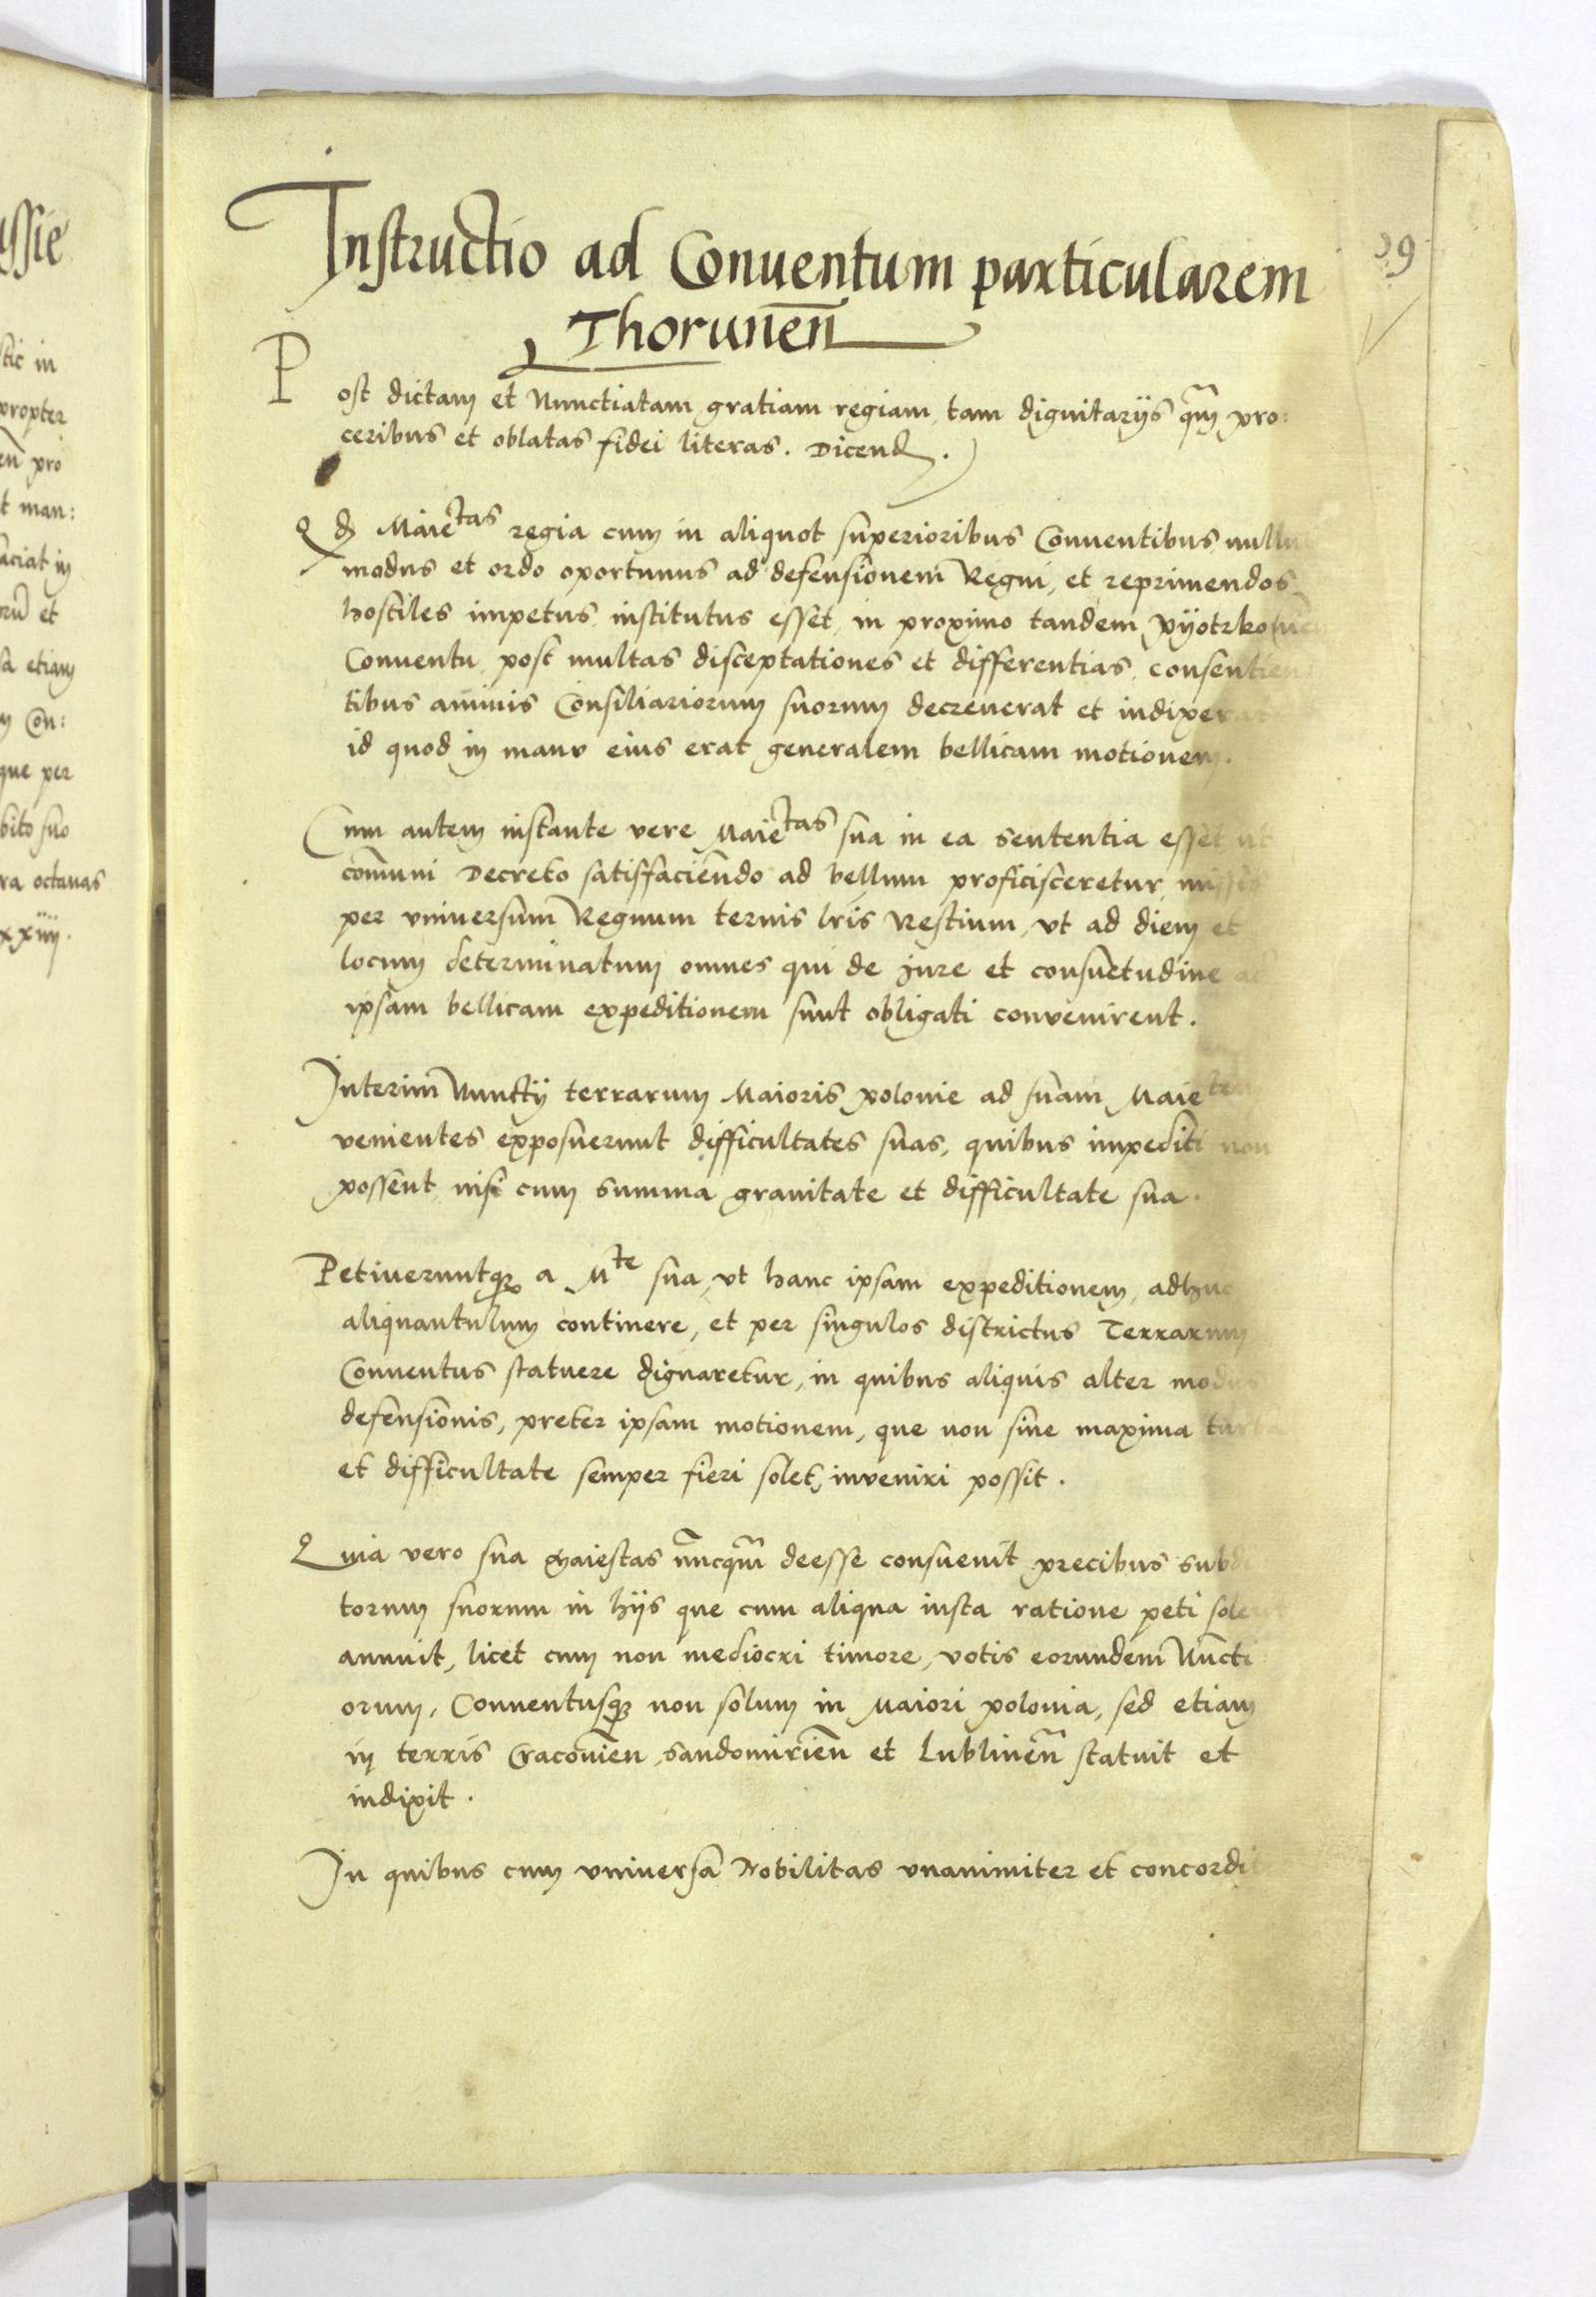 ssie
stic in
propter
en̄ pro
t man:
aciat in
orū et
sa etiam
m Con:
que per
bito suo
ra octauas
xxiiij.
39
Instructio ad Conuentum particularem
Thorunen̄
Post dictam et Nunctiatam gratiam regiam, tam dignitarijs qm̄ pro:
ceribus et oblatas fidei literas. Dicend.
Qd Maietas regia cum in aliquot superioribus Conuentibus nullus
modus et ordo oportunus ad defensionem Regni, et reprimendos
hostiles impetus institutus esset, in proximo tandem Pijotrkouien
Conuentu, post multas disceptationes et differentias, consentien
tibus animis Consiliariorum suorum decreuerat et indixerat
id quod in manu eius erat generalem bellicam motionem.
Cum autem instante vere Maietas sua in ea sententia esset ut
com̄uni Decreto satisfaciendo ad bellum proficisceretur, missis
per vniuersum Regnum ternis lr̄is Restium, vt ad diem et
locum determinatum omnes qui de Jure et consuetudine ad
ipsam bellicam expeditionem sunt obligati convenirent.
Interim Nunctij terrarum Maioris polonie ad suam Maietem
venientes exposuerunt difficultates suas, quibus impediti non
possent nisi cum summa grauitate et difficultate sua.
Petiueruntq a Mte sua, vt hanc ipsam expeditionem, adhuc
aliquantulum continere, et per singulos districtus Terrarum
Conuentus statuere dignaretur, in quibus aliquis alter modus
defensionis, preter ipsam motionem, que non sine maxima turba
et difficultate semper fieri solet, inveniri possit.
Quia vero sua Maiestas nuncqm̄ deesse consueuit precibus subdi
torum suorum in hijs que cum aliqua iusta ratione peti solent
annuit, licet cum non mediocri timore, votis eorundem Nuncti
orum, Conuentusq non solum in Maiori polonia, sed etiam
in terris Cracouien̄, Sandomirien̄ et Lublinen̄ statuit et
indixit.
In quibus cum vniuersa Nobilitas vnanimiter et concordit